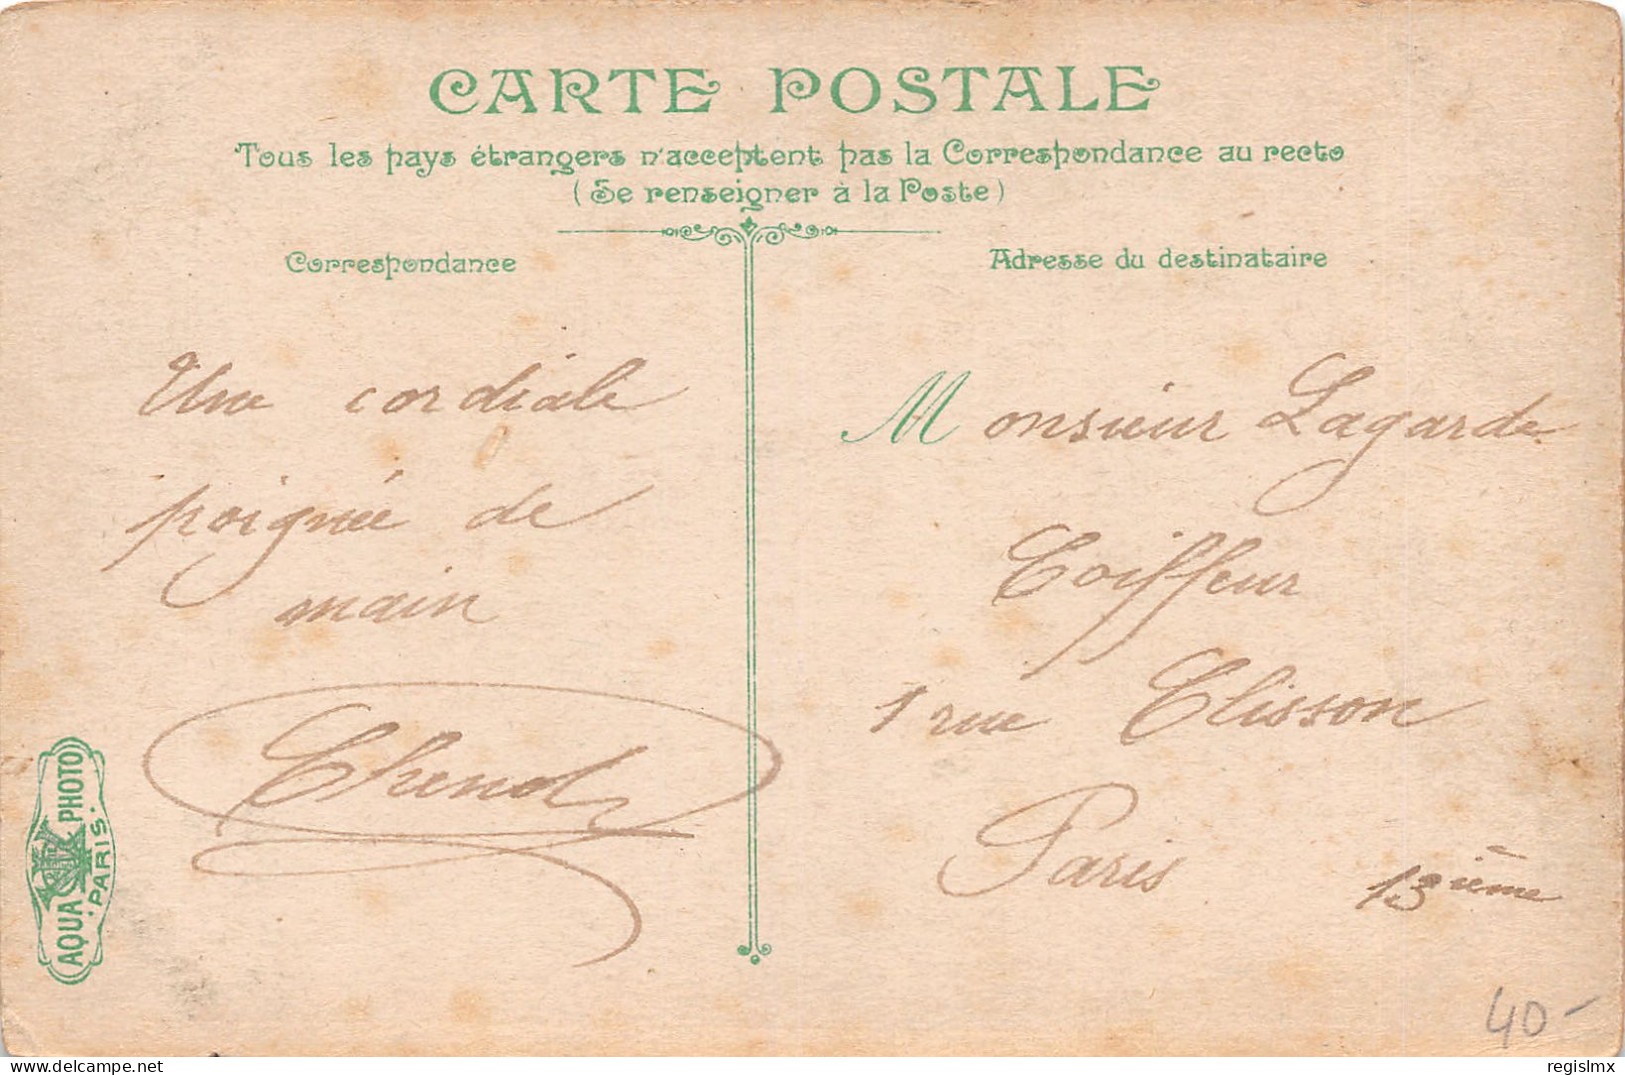 CARTE POSTALE
Tous les pays étrangers n'acceptent pas la Correspondance au recto
(Se renseigner à la Poste)
Correspondance
Adresse du destinataire
Une cordiale
poignée de
main
Monsieur Lagarde
Coiffeur
1 rue Clisson
Paris 13ième
AQUA PHOTO
PARIS
40-
regislmx